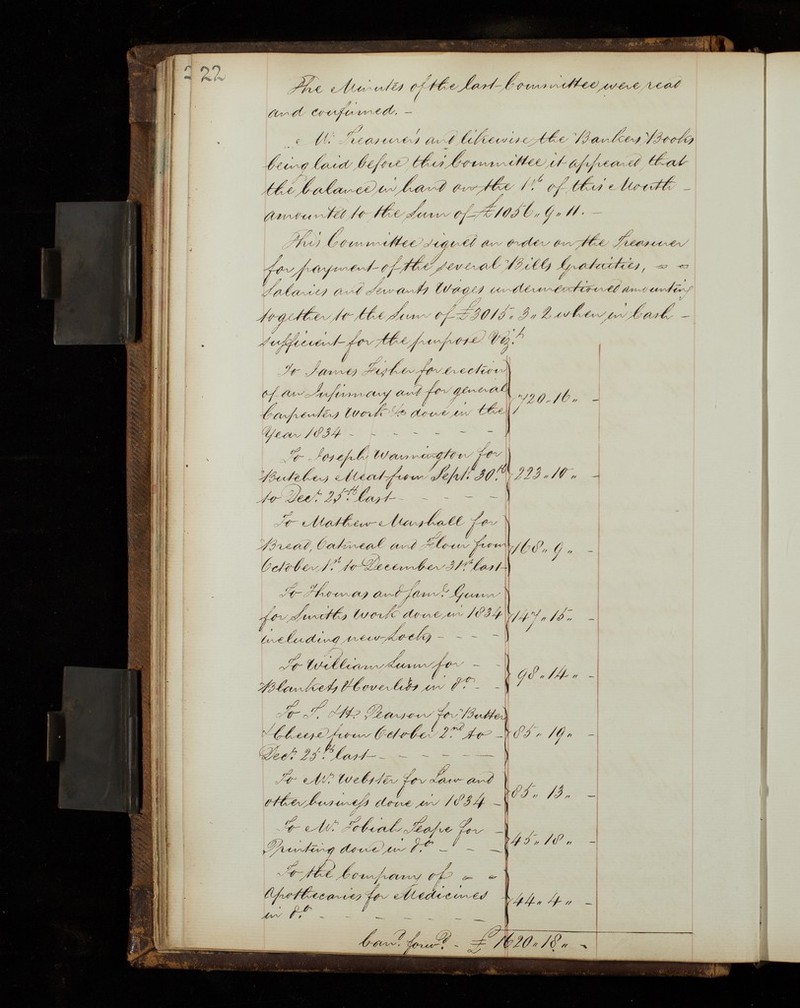 222
The Minutes of the last Committee were read
and confirmed. -
Mr. Treasurer's and likewise the Bankers Books
being laid before this Committee it appeared that
the balance in hand on the 1st. of this Month -
amounted to the Sum of £1056 „ 9 „ 11. -
This Committee signed an order on the Treasurer
for payment of the several Bills Gratuities, = =
Salaries and Servants Wages undermentioned amounting
together to the Sum of £3015 „ 3 „ 2 when in Cash -
sufficient for the purpose Vizt.
To James Fisher for erection
of an Infirmary and for general
Carpenters Work &c done in the
Year 1834 - - - - - - 720 „ 16 „ -
To Joseph Warmington for
Butchers Meat from Sept. 30th.
to Decr. 25th. last - - - - 223 „ 10 „ -
To Mathew Marshall for
Bread, Oatmeal and Flour from
October 1st. to December 31st. last - 168 „ 9 „ -
To Thomas and Saml. Gunn
for Smiths Work done in 1834
including new Locks - - - - 147 „ 15 „ -
To William Lunn for - -
Blankets & Coverlids in do. - - 98 „ 14 „ -
To T. & H. Pearson for Butter
& Cheese from October 2nd. to -
Decr. 25th. last - - - - 85 „ 19 „ -
To Mr. Webster for Law and
other business done in 1834 - 85 „ 13 „ -
To Mr. Tobiah Teape for -
Printing done in do. - - - 45 „ 18 „ -
To the Company of = =
Apothecaries for Medicines
in do. - - - - - - - 44 „ 4 „ -
Card. forwd. - £ 1620 „ 18 „ -